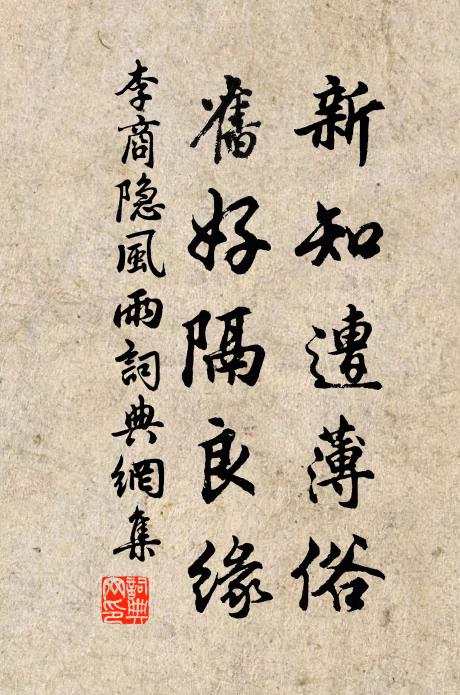 新知遭薄俗
舊好隔良緣
李商隐風雨詞典網集
詞典
网印